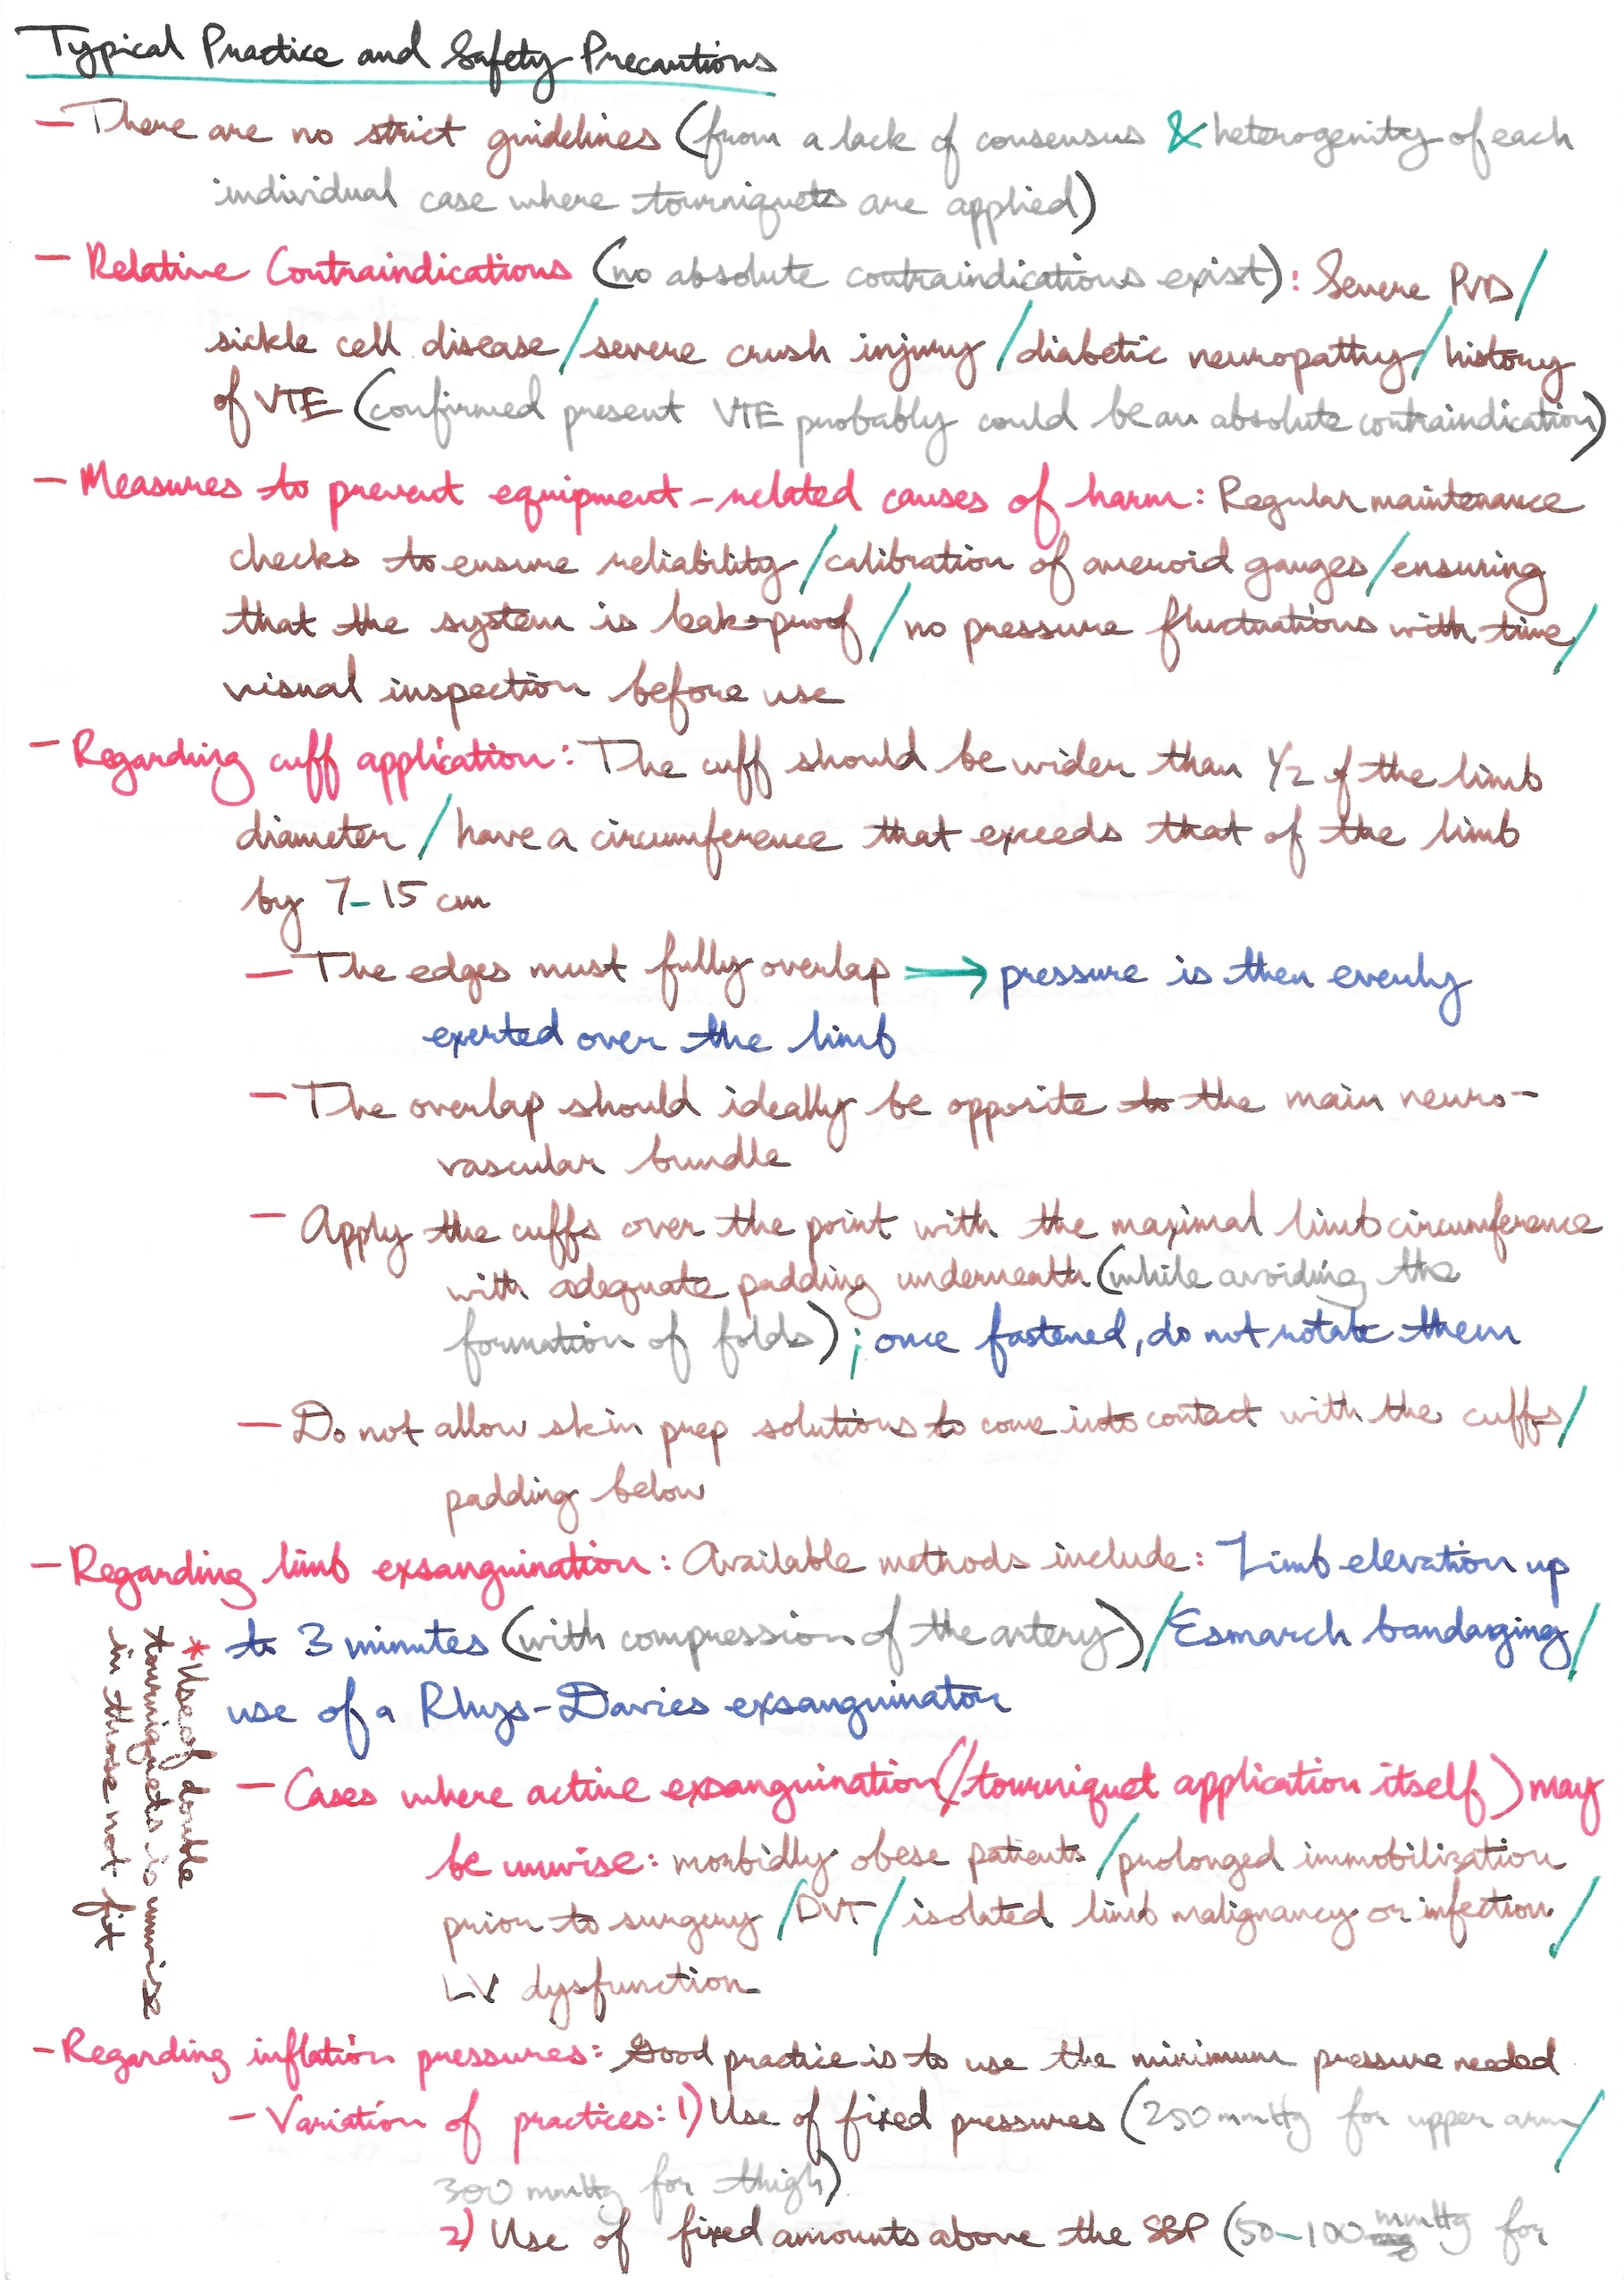 Typical Practice and Safety Precautions
- There are no strict guidelines (from a lack of consensus & heterogenity of each
individual case where tourniquets are applied)
- Relative Contraindications (no absolute contraindications exist): Severe PVD/
sickle cell disease/severe crush injury/diabetic neuropathy/history
of VTE (confirmed present VTE probably could be an absolute contraindication)
- Measures to prevent equipment-related causes of harm: Regular maintenance
checks to ensure reliability/calibration of aneroid gauges/ensuring
that the system is leak-proof/no pressure fluctuations with time/
visual inspection before use
- Regarding cuff application: The cuff should be wider than 1/2 of the limb
diameter/have a circumference that exceeds that of the limb
by 7-15 cm
- The edges must fully overlap → pressure is then evenly
exerted over the limb
- The overlap should ideally be opposite to the main neuro-
vascular bundle
- Apply the cuffs over the point with the maximal limb circumference
with adequate padding underneath (while avoiding the
formation of folds); once fastened, do not rotate them
- Do not allow skin prep solutions to come into contact with the cuffs/
padding below
- Regarding limb exsanguination: Available methods include: Limb elevation up
to 3 minutes (with compression of the artery)/Esmarch bandaging/
use of a Rhys-Davies exsanguinator
- Cases where active exsanguination (/tourniquet application itself) may
be unwise: morbidly obese patients/prolonged immobilization
prior to surgery/DVT/isolated limb malignancy or infection/
LV dysfunction
* Use of double
tourniquets is unwise
in those not fit
- Regarding inflation pressures: Good practice is to use the minimum pressure needed
- Variation of practices: 1) Use of fixed pressures (250 mmHg for upper arm/
300 mmHg for thigh)
2) Use of fixed amounts above the SBP (50-100 mmHg for